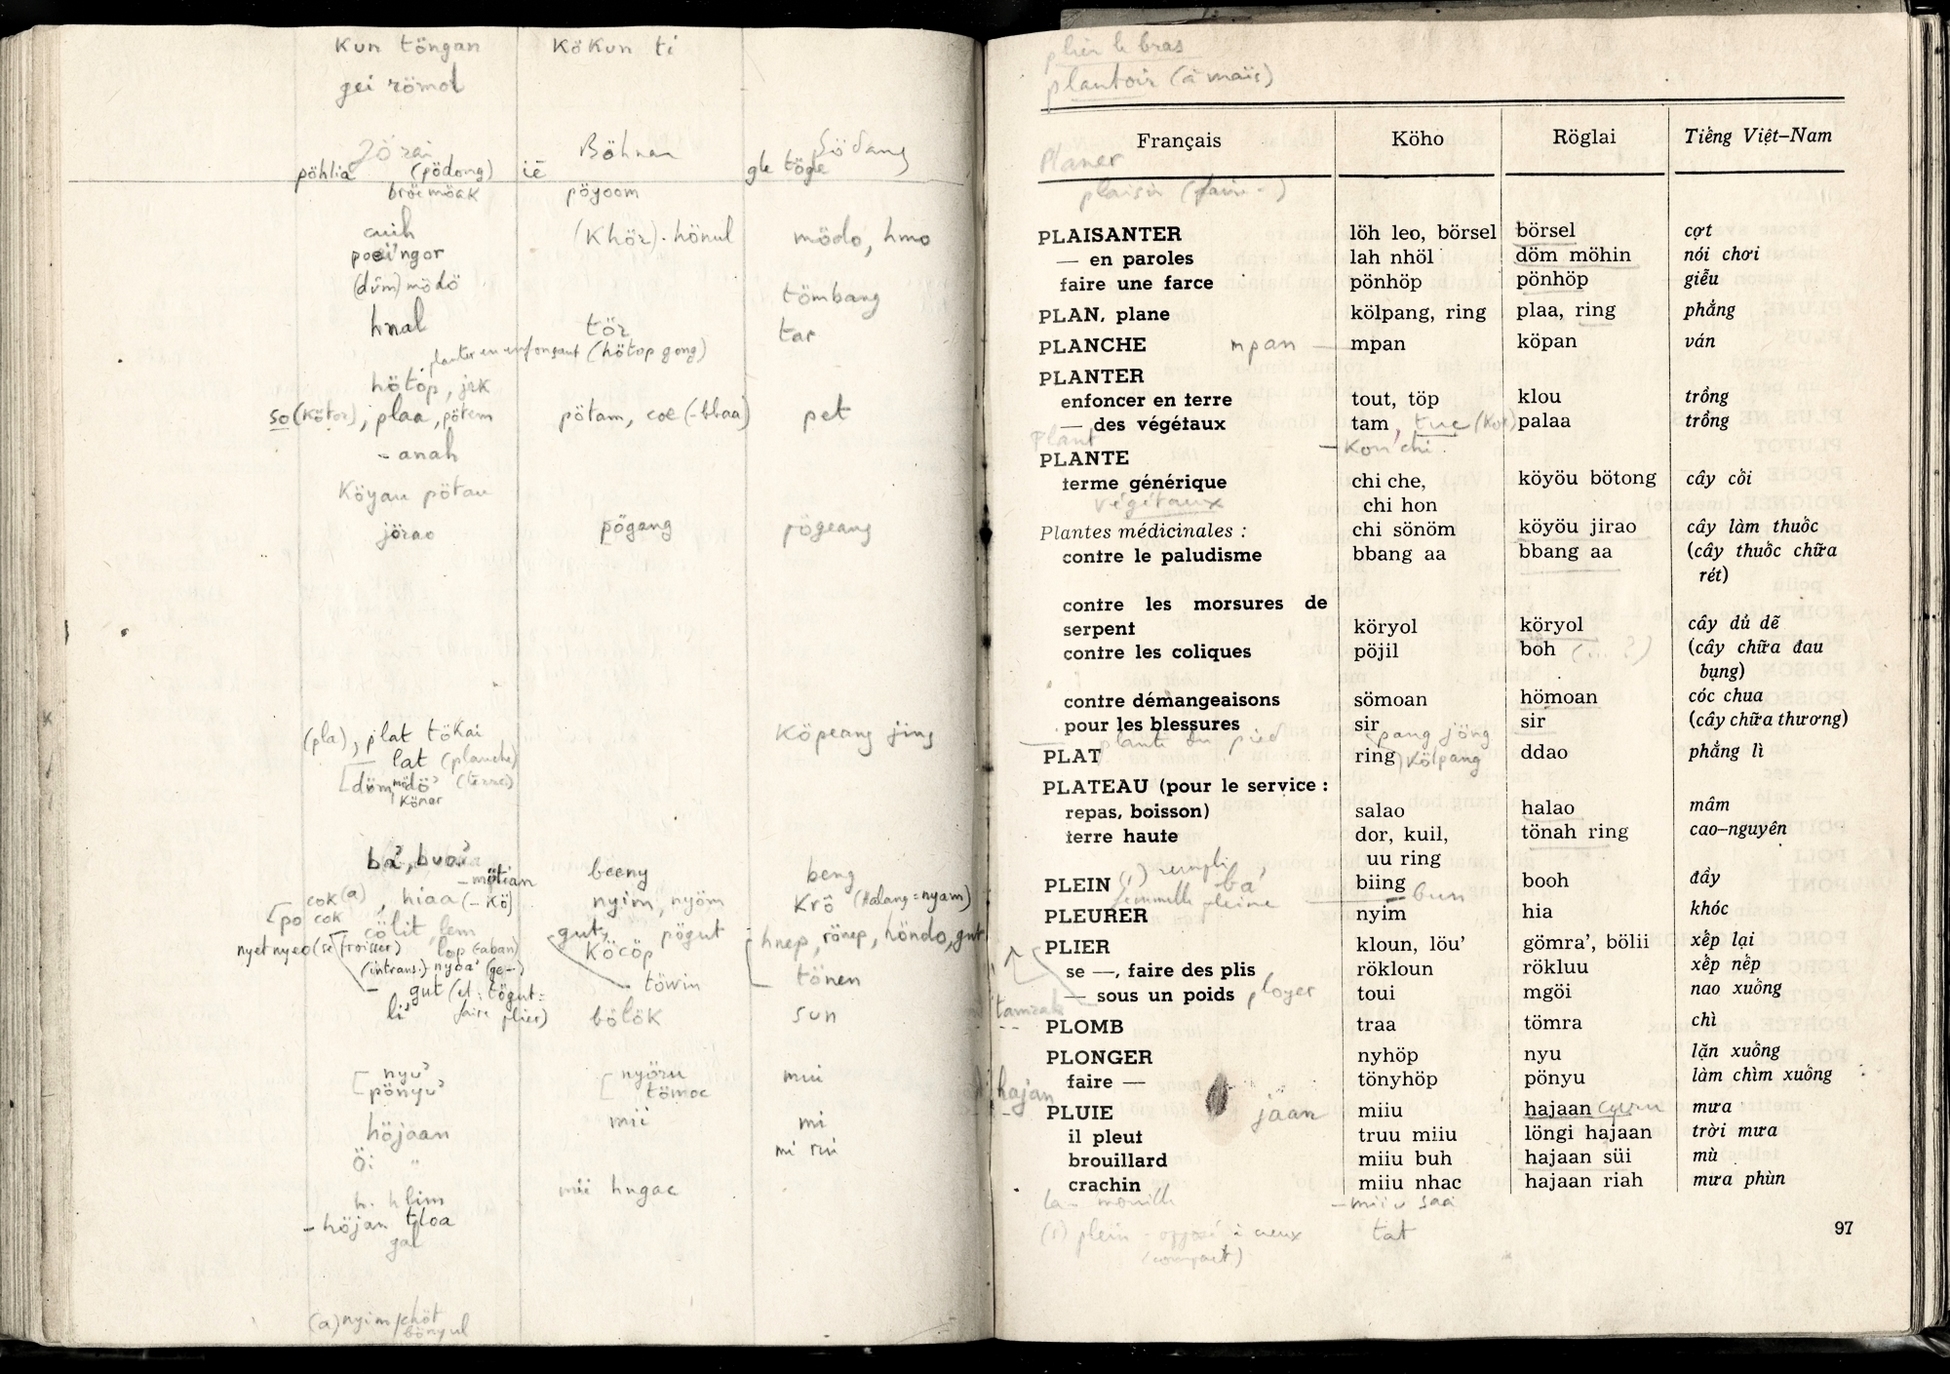 Kun töngan KöKun ti
gei römot
Jörai Böhnar Södang
pöhlia (pödong) iẽ gle tögle
pöyoom
cuih (Khör). hönul mödo, hmo
ngor
(dŭm) mödö tömbang
hnal tör tar
planter en enfonçant (hötop gong)
hötóp, jrk
so (Kötor), plaa, pötem pötam, coe (-bbaa) pet
- anah
Köyau pötau
jörao pögang pögeang
(pla), plat töKai Köpeang jing
lat (planche)
döm mödö (terre)
Könar
ba', bua' beeny beng
- mötian
cok (a), hiaa (- Kö) nyim, nyöm Krô (Halang = nyam)
po cok
cölit, lem gut, pögut hnep, rönep, höndo, gut
nyet nyeo (se froisser) lop (aban) Köcöp
(intrans.) nyoa' (ge-) töwin tönen
- gut (et: tögut =
li' faire plier) bölök sun
nyu' nyöru mui
pönyu' tömoc
höjaan mii mi
Öi " mi rui
h. hlim mii hngac
- höjan tloa
gal
(a) nyim / chöt
bönyul
plier le bras
plantoir (à maïs)
Français Köho Röglai Tiếng Việt–Nam
Planer
plaisir (faire -)
PLAISANTER löh leo, börsel börsel cợt
— en paroles lah nhöl döm möhin nói chơi
faire une farce pönhöp pönhöp giễu
PLAN, plane kölpang, ring plaa, ring phẳng
PLANCHE mpan — mpan köpan ván
PLANTER
enfoncer en terre tout, töp klou trồng
— des végétaux tam, tuc (Kon) palaa trồng
Plant - Kon chi
PLANTE
terme générique chi che, köyöu bötong cây cối
végétaux chi hon
Plantes médicinales : chi sönöm köyöu jirao cây làm thuốc
contre le paludisme bbang aa bbang aa (cây thuốc chữa
rét)
contre les morsures de
serpent köryol köryol cây dủ dẽ
contre les coliques pöjil boh (... ?) (cây chữa đau
bụng)
contre démangeaisons sömoan hömoan cóc chua
pour les blessures sir sir (cây chữa thương)
plante du pied pang jöng
PLAT ring, kölpang ddao phẳng lì
PLATEAU (pour le service :
repas, boisson) salao halao mâm
terre haute dor, kuil, tönah ring cao–nguyên
uu ring
PLEIN (1) rempli ba' biing bun booh đầy
femelle pleine
PLEURER nyim hia khóc
PLIER kloun, löu' gömra', bölii xếp lại
se —, faire des plis rökloun rökluu xếp nếp
— sous un poids ployer toui mgöi nao xuống
PLOMB traa tömra chì
PLONGER nyhöp nyu lặn xuống
faire — tönyhöp pönyu làm chìm xuống
hajan
PLUIE jäan miiu hajaan mưa
il pleut truu miiu löngi hajaan trời mưa
brouillard miiu buh hajaan süi mù
crachin miiu nhac hajaan riah mưa phùn
la - mouille - miiu saa
(1) plein - opposé à creux tat
(compact)
97